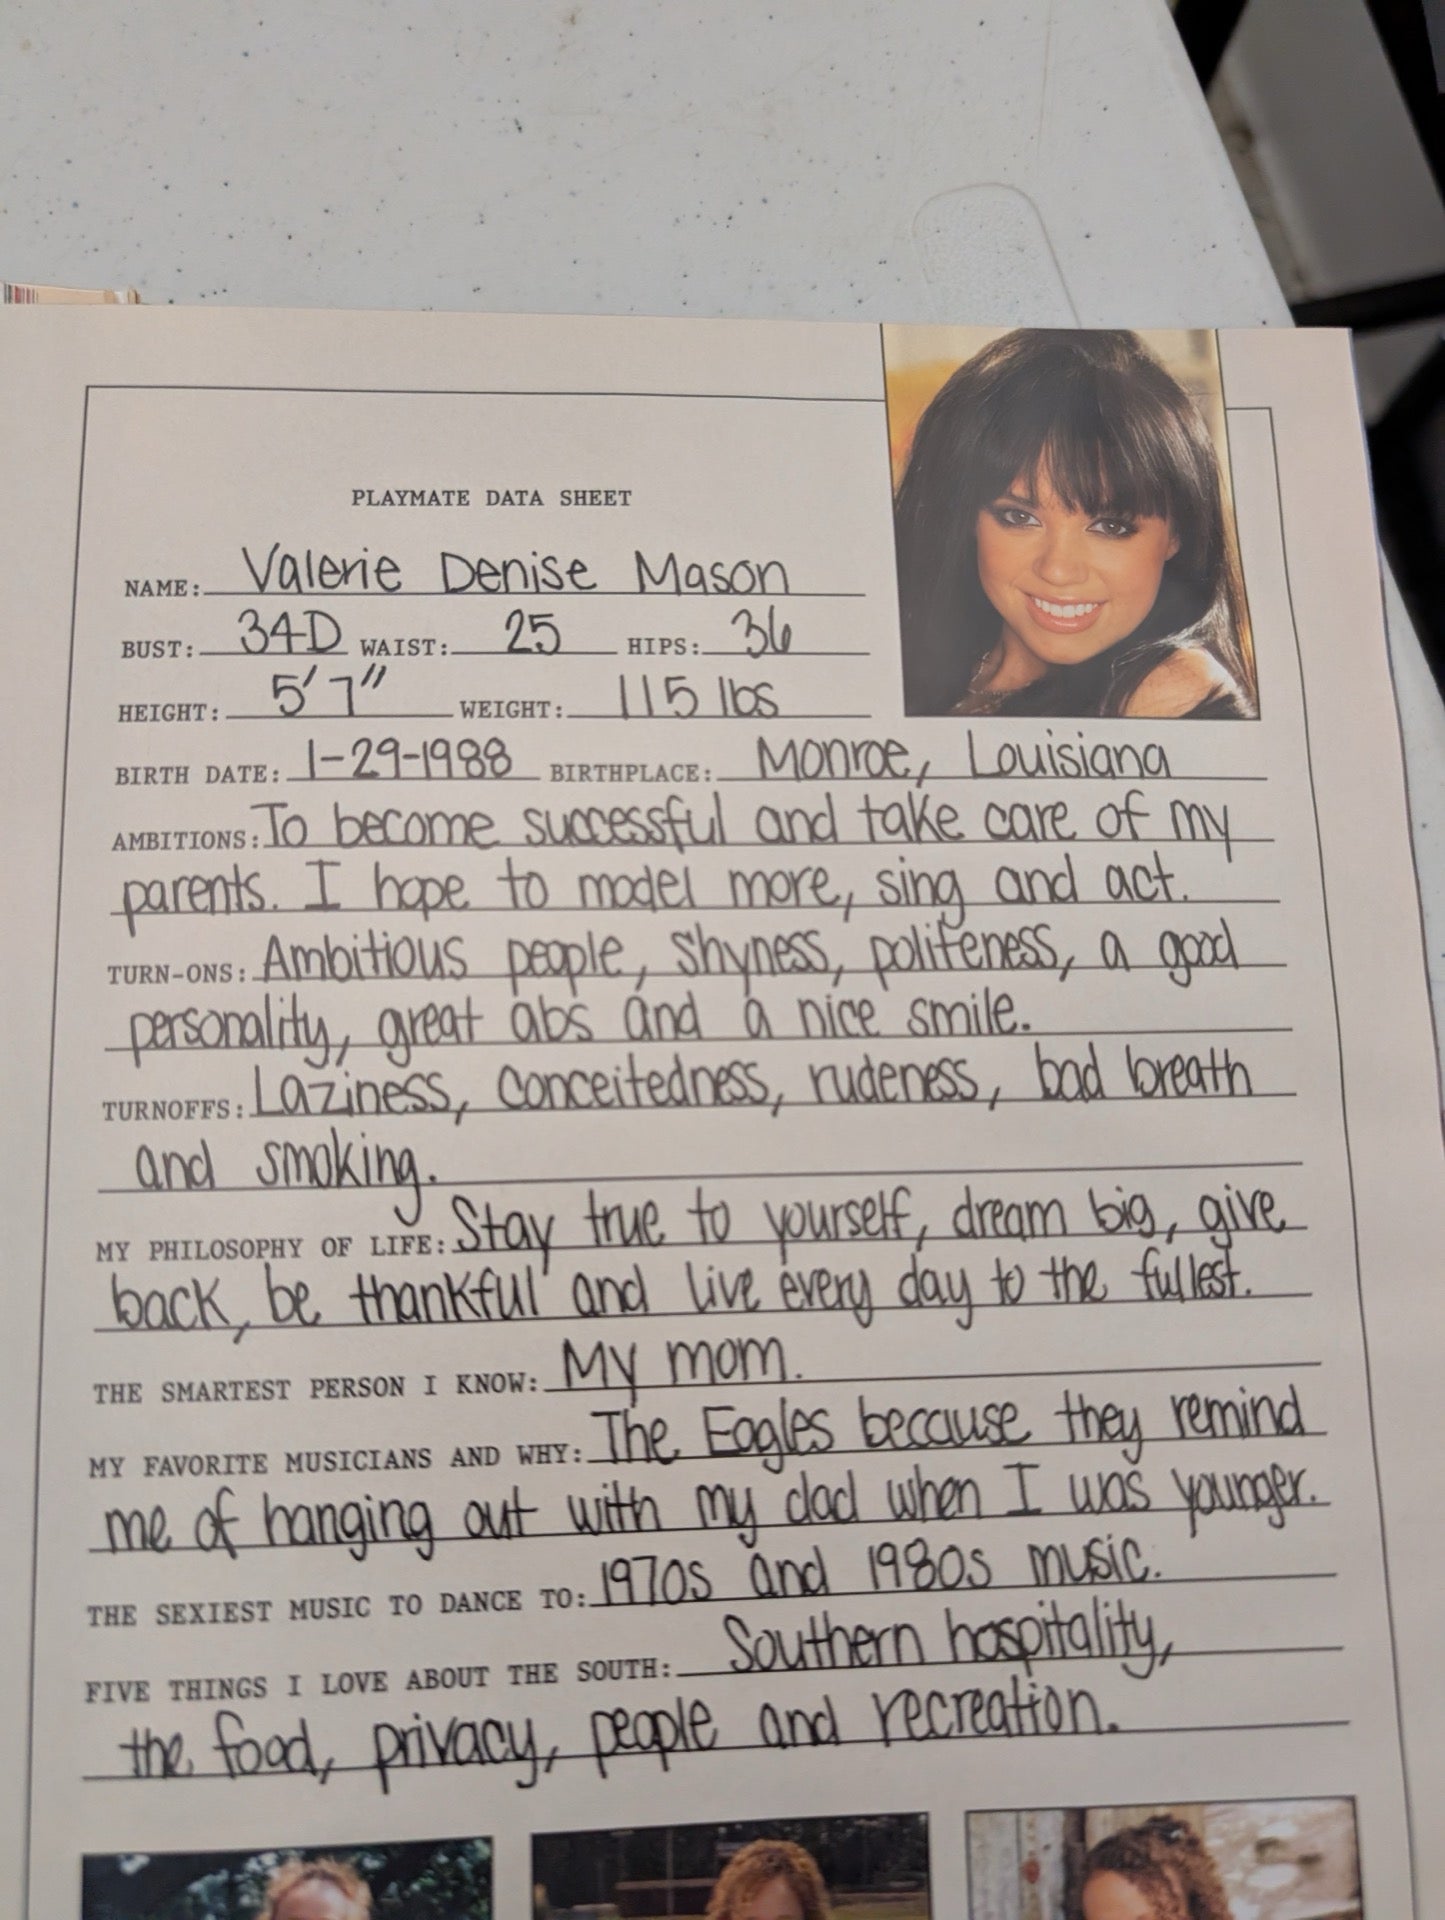 PLAYMATE DATA SHEET
NAME: Valerie Denise Mason
BUST: 34D WAIST: 25 HIPS: 36
HEIGHT: 5'7" WEIGHT: 115 lbs
BIRTH DATE: 1-29-1988 BIRTHPLACE: Monroe, Louisiana
AMBITIONS: To become successful and take care of my
parents. I hope to model more, sing and act.
TURN-ONS: Ambitious people, shyness, politeness, a good
personality, great abs and a nice smile.
TURNOFFS: Laziness, conceitedness, rudeness, bad breath
and smoking.
MY PHILOSOPHY OF LIFE: Stay true to yourself, dream big, give
back, be thankful and live every day to the fullest.
THE SMARTEST PERSON I KNOW: My mom.
MY FAVORITE MUSICIANS AND WHY: The Eagles because they remind
me of hanging out with my dad when I was younger.
THE SEXIEST MUSIC TO DANCE TO: 1970s and 1980s music.
FIVE THINGS I LOVE ABOUT THE SOUTH: Southern hospitality,
the food, privacy, people and recreation.